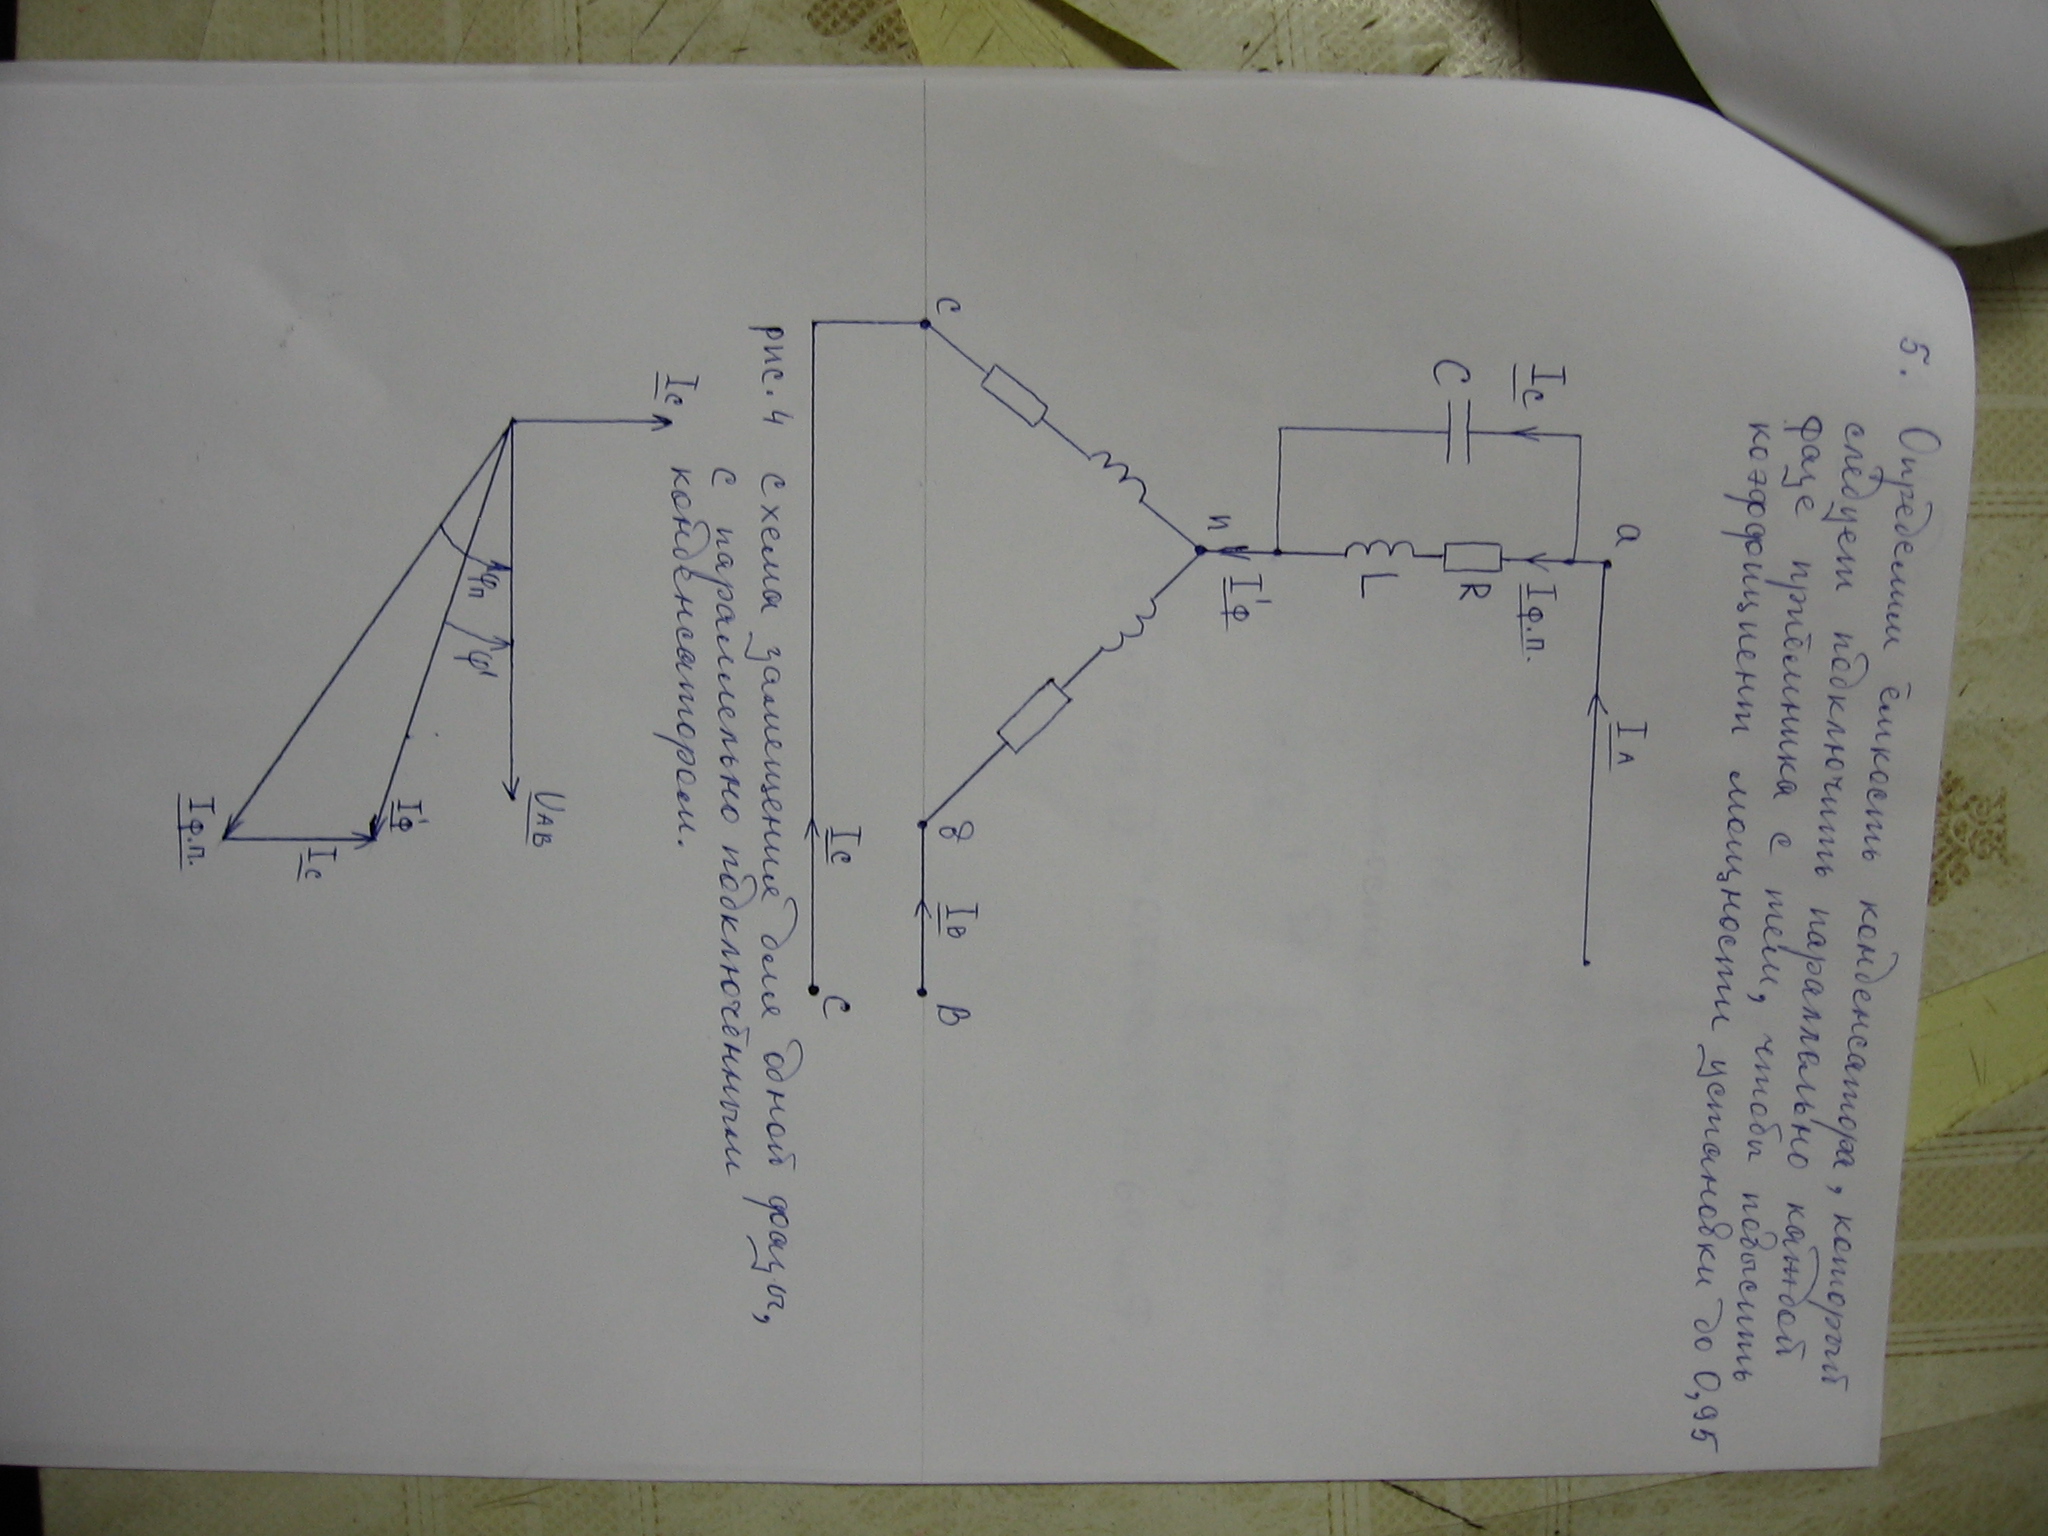 5. Определим ёмкость конденсатора, который
следует подключить параллельно каждой
фазе приёмника с тем, чтобы повысить
коэффициент мощности установки до 0,95
a
I_A
I_C
I_ф.п.
C
R
L
n
I'_ф
c
в
I_B
B
I_C
C
рис. 4 схема замещения для одной фазы,
с параллельно подключённым
конденсатором.
I_C
U_AB
φп
φ'
I'_ф
I_C
I_ф.п.